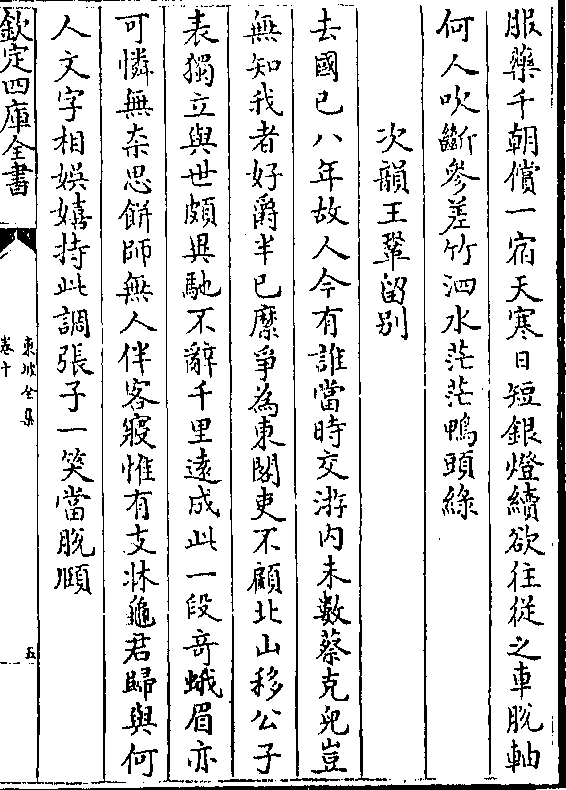 服藥千朝償一宿天寒日短銀燈續欲往從之車脫軸
何人吹斷參差竹泗水茫茫鴨頭綠
次韻王鞏留别
去國已八年故人今有誰當時交游内未數蔡克兒豈
無知我者好爵半已縻爭為東閣吏不顧北山移公子
表獨立與世頗異馳不辭千里逺成此一段竒蛾眉亦
可憐無奈思餅師無人伴客寢惟有支牀龜君歸與何
人文字相娯嬉持此調張子一笑當脫頤
欽定四庫全書
東坡全集
卷十
五